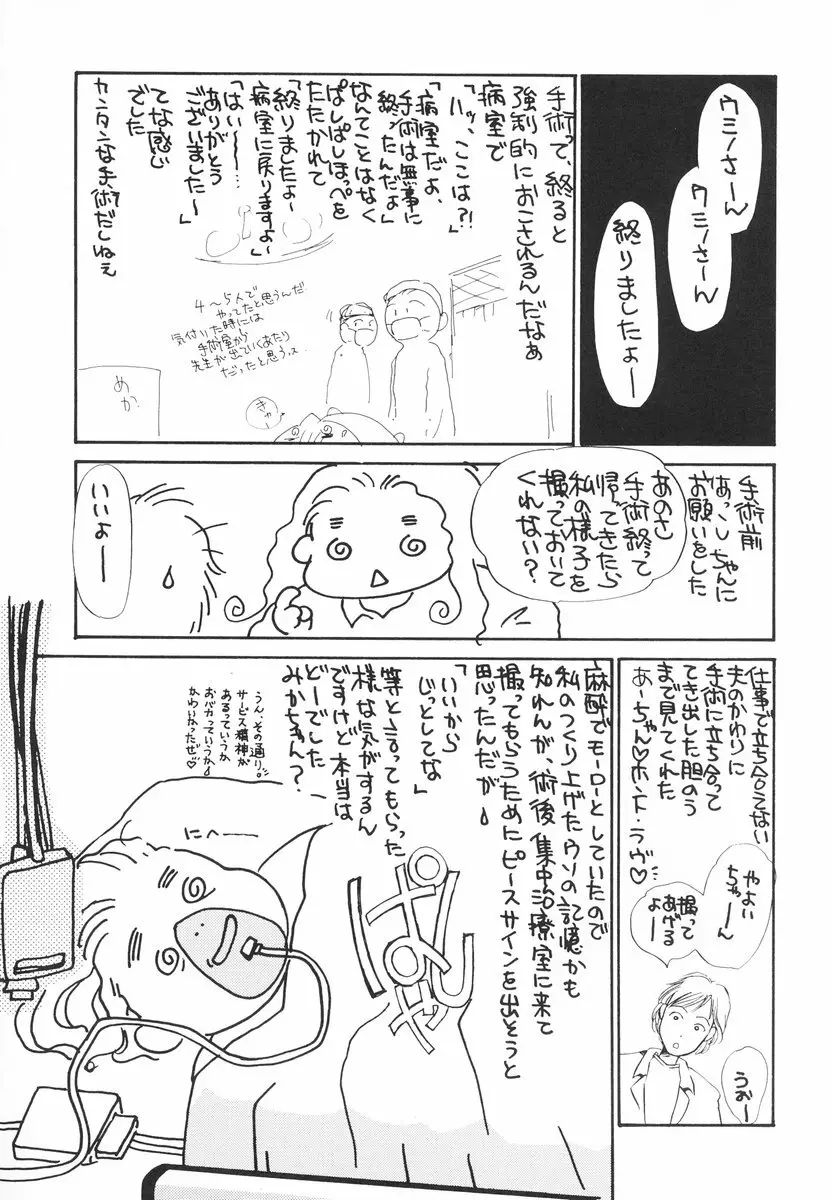 ウミノさーん
ウミノさーん
終りましたよー
手術って、終ると
強制的におこされるんだなぁ
病室で
「ハッ、ここは?!」
「病室だよ、
手術は無事に
終ったんだよ」
なんてことはなく
ぱしぱしほっぺを
たたかれて
「終りましたよ〜
病室に戻りますよ〜」
「はい〜…
ありがとう
ございました〜」
てな感じ
でした
カンタンな手術だしねぇ
4〜5人で
やってたと思うんだ
気付いた時には
手術室から
先生が出ていくあたり
だったと思うっス
めか
きゃー
手術前
あっこちゃんに
お願いをした
あのさ
手術終って
帰ってきたら
私の様子を
撮っておいて
くれない?
いいよー
仕事で立ち合えない
夫のかわりに
手術に立ち合って
てき出した胆のう
まで見てくれた
あーちゃん♡ホント・ラヴ♡
やよい
ちゃーん
撮って
あげる
よー
うおー
麻酔でモーローとしていたので
私のつくり上げたウソの記憶かも
知れんが、術後集中治療室に来て
撮ってもらうためにピースサインを出そうと
思ったんだが
「いいから
じっとしてな」
等と言ってもらった
様な気がするん
ですけど本当は
どーでした
みかちゃん?
うん、その通り。
サービス精神が
あるっていうか
おバカっていうか
かわいかったぜ♡
にへ——
ぱしゃ